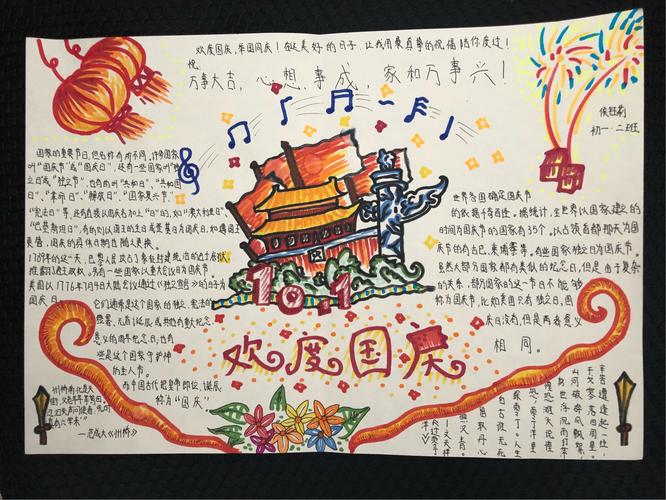 欢度国庆,举国同庆!在这美好的日子,让我用最真挚的祝福陪你度过!
祝:
万事大吉,心想事成,家和万事兴!
初一·二班
国家的重要节日,但名称有所不同。许多国家
叫"国庆节"或"国庆日",还有一些国家叫"独
立日"或"独立节",也有的叫"共和日"、"共和国
日"、"革命日"、"解放日"、"国家复兴节"、
"宪法日"等,还有直接以国庆名加上"日"的,如"澳大利亚日"、
"巴基斯坦日",有的则以国王的生日或登基日为国庆日,如遇国王
更替,国庆的具体日期也随之更换。
1789年的这一天,巴黎人民攻占了象征封建统治的巴士底狱,
推翻了君主政权。另有一些国家以重大会议日为国庆节。
美国以1776年7月4日大陆会议通过《独立宣言》的日子为
国庆日。
它们通常是这个国家的独立、宪法的
签署、元首诞辰或其他有重大纪念
意义的周年纪念日,也有
些是这个国家守护神
的圣人节。
而中国古代把皇帝即位、诞辰
称为"国庆"
10.1
欢度国庆
世界各国确定国庆节
的依据千奇百怪。据统计,全世界以国家建立的
时间为国庆节的国家有35个。以占领首都那天为国
庆节的有古巴、柬埔寨等。有些国家独立日为国庆节。
虽然大部分国家都有类似的纪念日,但是由于复杂
的关系,部分国家的这一节日不能够
称为国庆节,比如美国只有独立日,国
庆日没有,但是两者意义
相同。
州桥南北是天
街,父老年年等驾回。
忍泪失声问使者,几时
真有六军来?
—范成大《州桥》
辛苦遭逢起一经,
干戈寥落四周星。
山河破碎风飘絮,
身世浮沉雨打萍。
惶恐滩头说惶
恐,零丁洋里
叹零丁。人生
自古谁无死
留取丹心
照汗青。
—文天祥
《过零丁
洋》